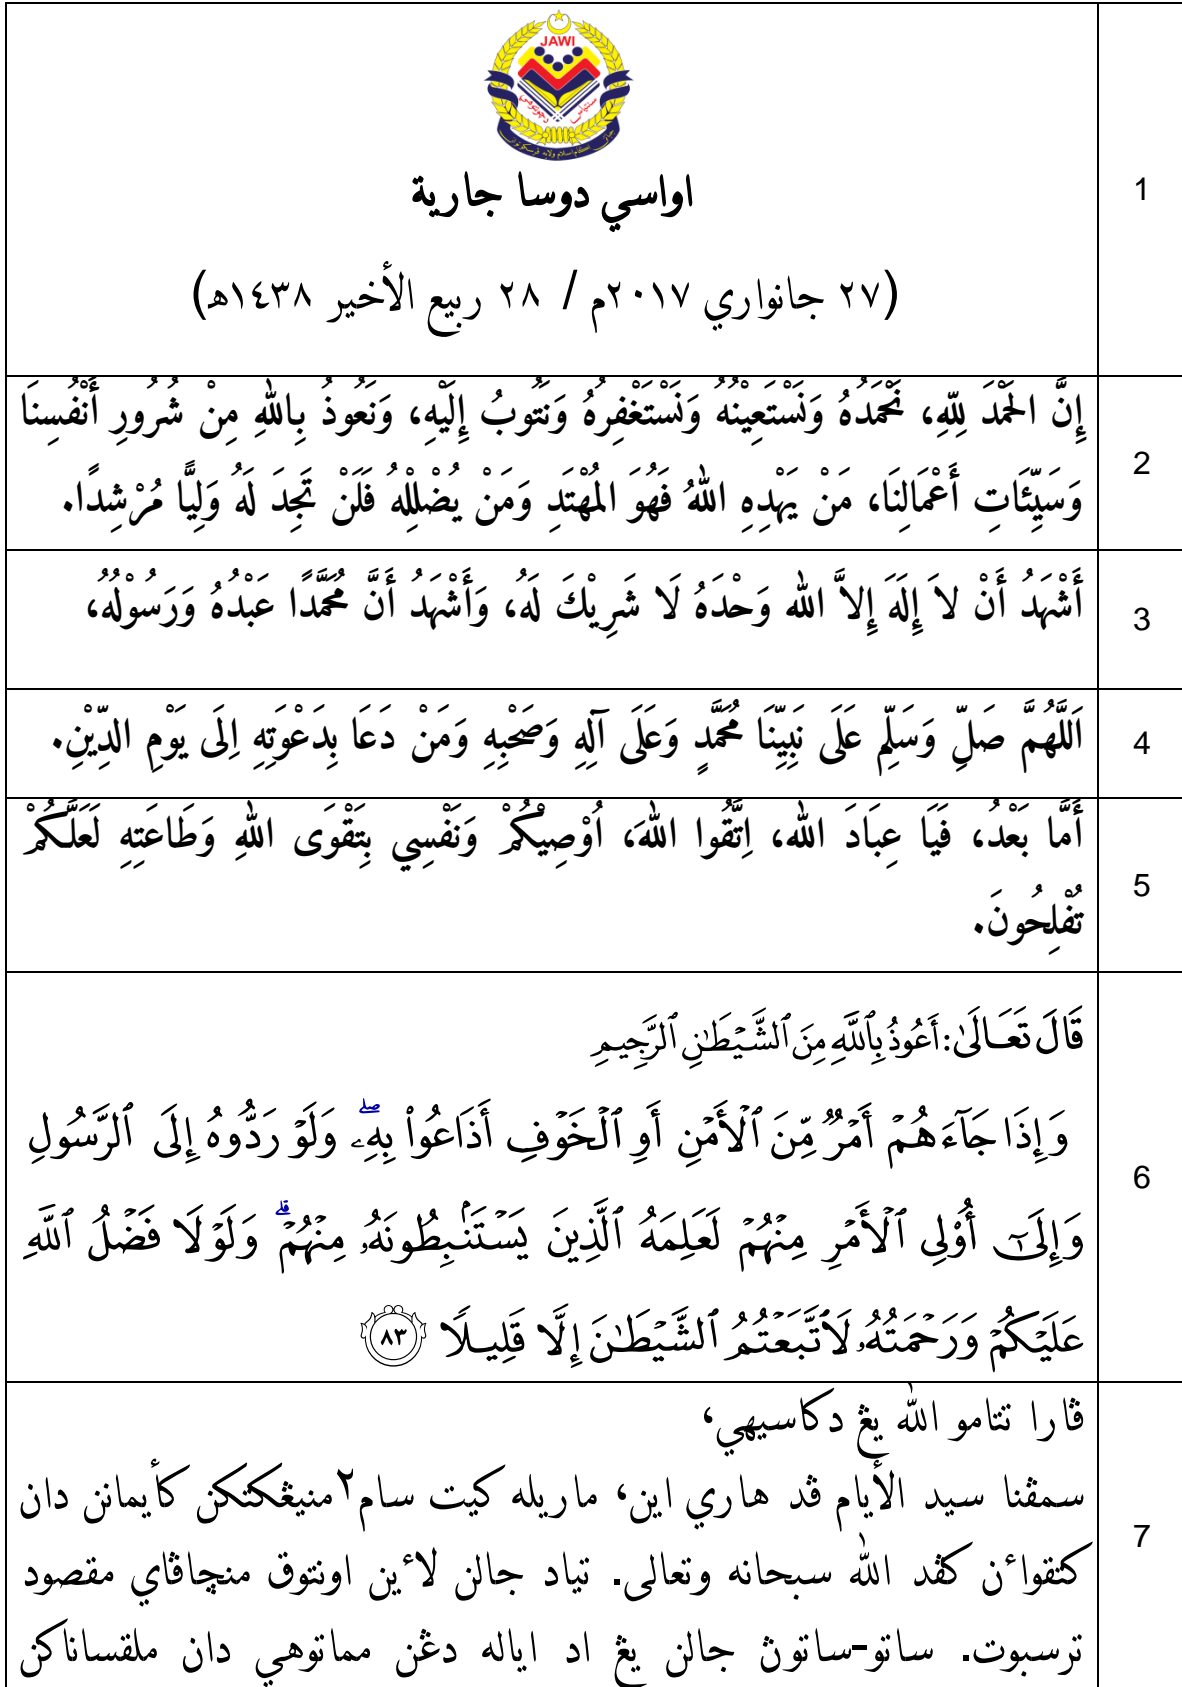 JAWI
اواسي دوسا جارية
1
(٢٧ جانواري ٢٠١٧م / ٢٨ ربيع الأخير ١٤٣٨هـ)
إِنَّ الحَمْدَ لِلّهِ، نَحْمَدُهُ وَنَسْتَعِيْنُهُ وَنَسْتَغْفِرُهُ وَنَتُوبُ إِلَيْهِ، وَنَعُوذُ بِاللهِ مِنْ شُرُورِ أَنْفُسِنَا
2
وَسَيِّئَاتِ أَعْمَالِنَا، مَنْ يَهْدِهِ اللهُ فَهُوَ المُهْتَدِ وَمَنْ يُضْلِلْهُ فَلَنْ تَجِدَ لَهُ وَلِيًّا مُرْشِدًا.
أَشْهَدُ أَنْ لاَ إِلَهَ إِلاَّ الله وَحْدَهُ لَا شَرِيْكَ لَهُ، وَأَشْهَدُ أَنَّ مُحَمَّدًا عَبْدُهُ وَرَسُوْلُهُ،
3
اَللَّهُمَّ صَلِّ وَسَلِّم عَلَى نَبِيِّنَا مُحَمَّدٍ وَعَلَى آلِهِ وَصَحْبِهِ وَمَنْ دَعَا بِدَعْوَتِهِ اِلَى يَوْمِ الدِّيْنِ.
4
أَمَّا بَعْدُ، فَيَا عِبَادَ الله، اِتَّقُوا اللهَ، اُوْصِيْكُمْ وَنَفْسِي بِتَقْوَى اللهِ وَطَاعَتِهِ لَعَلَّكُمْ
5
تُفْلِحُونَ.
قَالَ تَعَالَىٰ: أَعُوذُ بِٱللَّهِ مِنَ ٱلشَّيْطَٰنِ ٱلرَّجِيمِ
وَإِذَا جَآءَهُمْ أَمْرٌ مِّنَ ٱلْأَمْنِ أَوِ ٱلْخَوْفِ أَذَاعُوا۟ بِهِۦ ۖ وَلَوْ رَدُّوهُ إِلَى ٱلرَّسُولِ
6
وَإِلَىٰٓ أُو۟لِى ٱلْأَمْرِ مِنْهُمْ لَعَلِمَهُ ٱلَّذِينَ يَسْتَنۢبِطُونَهُۥ مِنْهُمْ ۗ وَلَوْلَا فَضْلُ ٱللَّهِ
عَلَيْكُمْ وَرَحْمَتُهُۥ لَٱتَّبَعْتُمُ ٱلشَّيْطَٰنَ إِلَّا قَلِيلًا ٨٣
ڤارا تتامو الله يڠ دكاسيهي،
سمڤنا سيد الأيام ڤد هاري اين، ماريله كيت سام٢ منيڠكتكن كأيمانن دان
7
كتقواءن كڤد الله سبحانه وتعالى. تياد جالن لاءين اونتوق منچاڤاي مقصود
ترسبوت. ساتو-ساتوڽ جالن يڠ اد اياله دڠن مماتوهي دان ملقساناكن